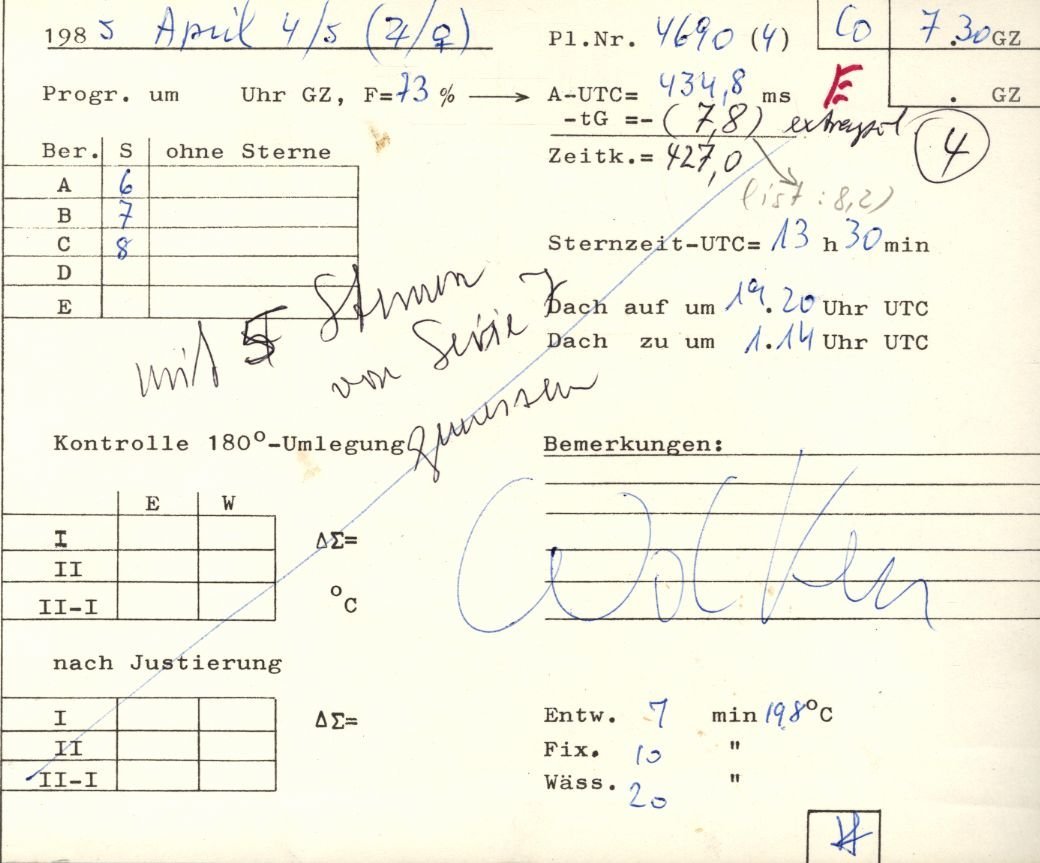 1985 April 4/5 (♃/♀) Pl.Nr. 4690 (4) Co 7.30 GZ
Progr. um Uhr GZ, F=73 % → A-UTC= 434,8 ms E . GZ
-tG =-(7,8) extrapol. 4
Ber. S ohne Sterne Zeitk.= 427,0
A 6
(ist : 8,2)
B 7
C 8 Sternzeit-UTC= 13 h 30 min
D
E Dach auf um 19.20 Uhr UTC
Dach zu um 1.14 Uhr UTC
mit 5 Sternen
von Serie 7
gemessen
Kontrolle 180°-Umlegung Bemerkungen:
E W
I ΔΣ=
II
II-I °C
Wolken
nach Justierung
I ΔΣ= Entw. 7 min 19,8 °C
II Fix. 10 "
II-I Wäss. 20 "